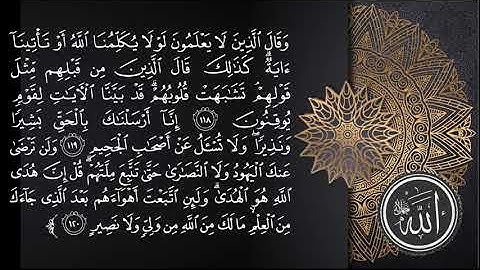 وَقَالَ ٱلَّذِينَ لَا يَعۡلَمُونَ لَوۡلَا يُكَلِّمُنَا ٱللَّهُ أَوۡ تَأۡتِينَآ
ءَايَةٞۗ كَذَٰلِكَ قَالَ ٱلَّذِينَ مِن قَبۡلِهِم مِّثۡلَ
قَوۡلِهِمۡۘ تَشَٰبَهَتۡ قُلُوبُهُمۡۗ قَدۡ بَيَّنَّا ٱلۡأٓيَٰتِ لِقَوۡمٖ
يُوقِنُونَ ١١٨ إِنَّآ أَرۡسَلۡنَٰكَ بِٱلۡحَقِّ بَشِيرٗا
وَنَذِيرٗاۖ وَلَا تُسۡـَٔلُ عَنۡ أَصۡحَٰبِ ٱلۡجَحِيمِ ١١٩ وَلَن تَرۡضَىٰ
عَنكَ ٱلۡيَهُودُ وَلَا ٱلنَّصَٰرَىٰ حَتَّىٰ تَتَّبِعَ مِلَّتَهُمۡۗ قُلۡ إِنَّ هُدَى
ٱللَّهِ هُوَ ٱلۡهُدَىٰۗ وَلَئِنِ ٱتَّبَعۡتَ أَهۡوَآءَهُم بَعۡدَ ٱلَّذِي جَآءَكَ
مِنَ ٱلۡعِلۡمِ مَا لَكَ مِنَ ٱللَّهِ مِن وَلِيّٖ وَلَا نَصِيرٍ ١٢٠
الله